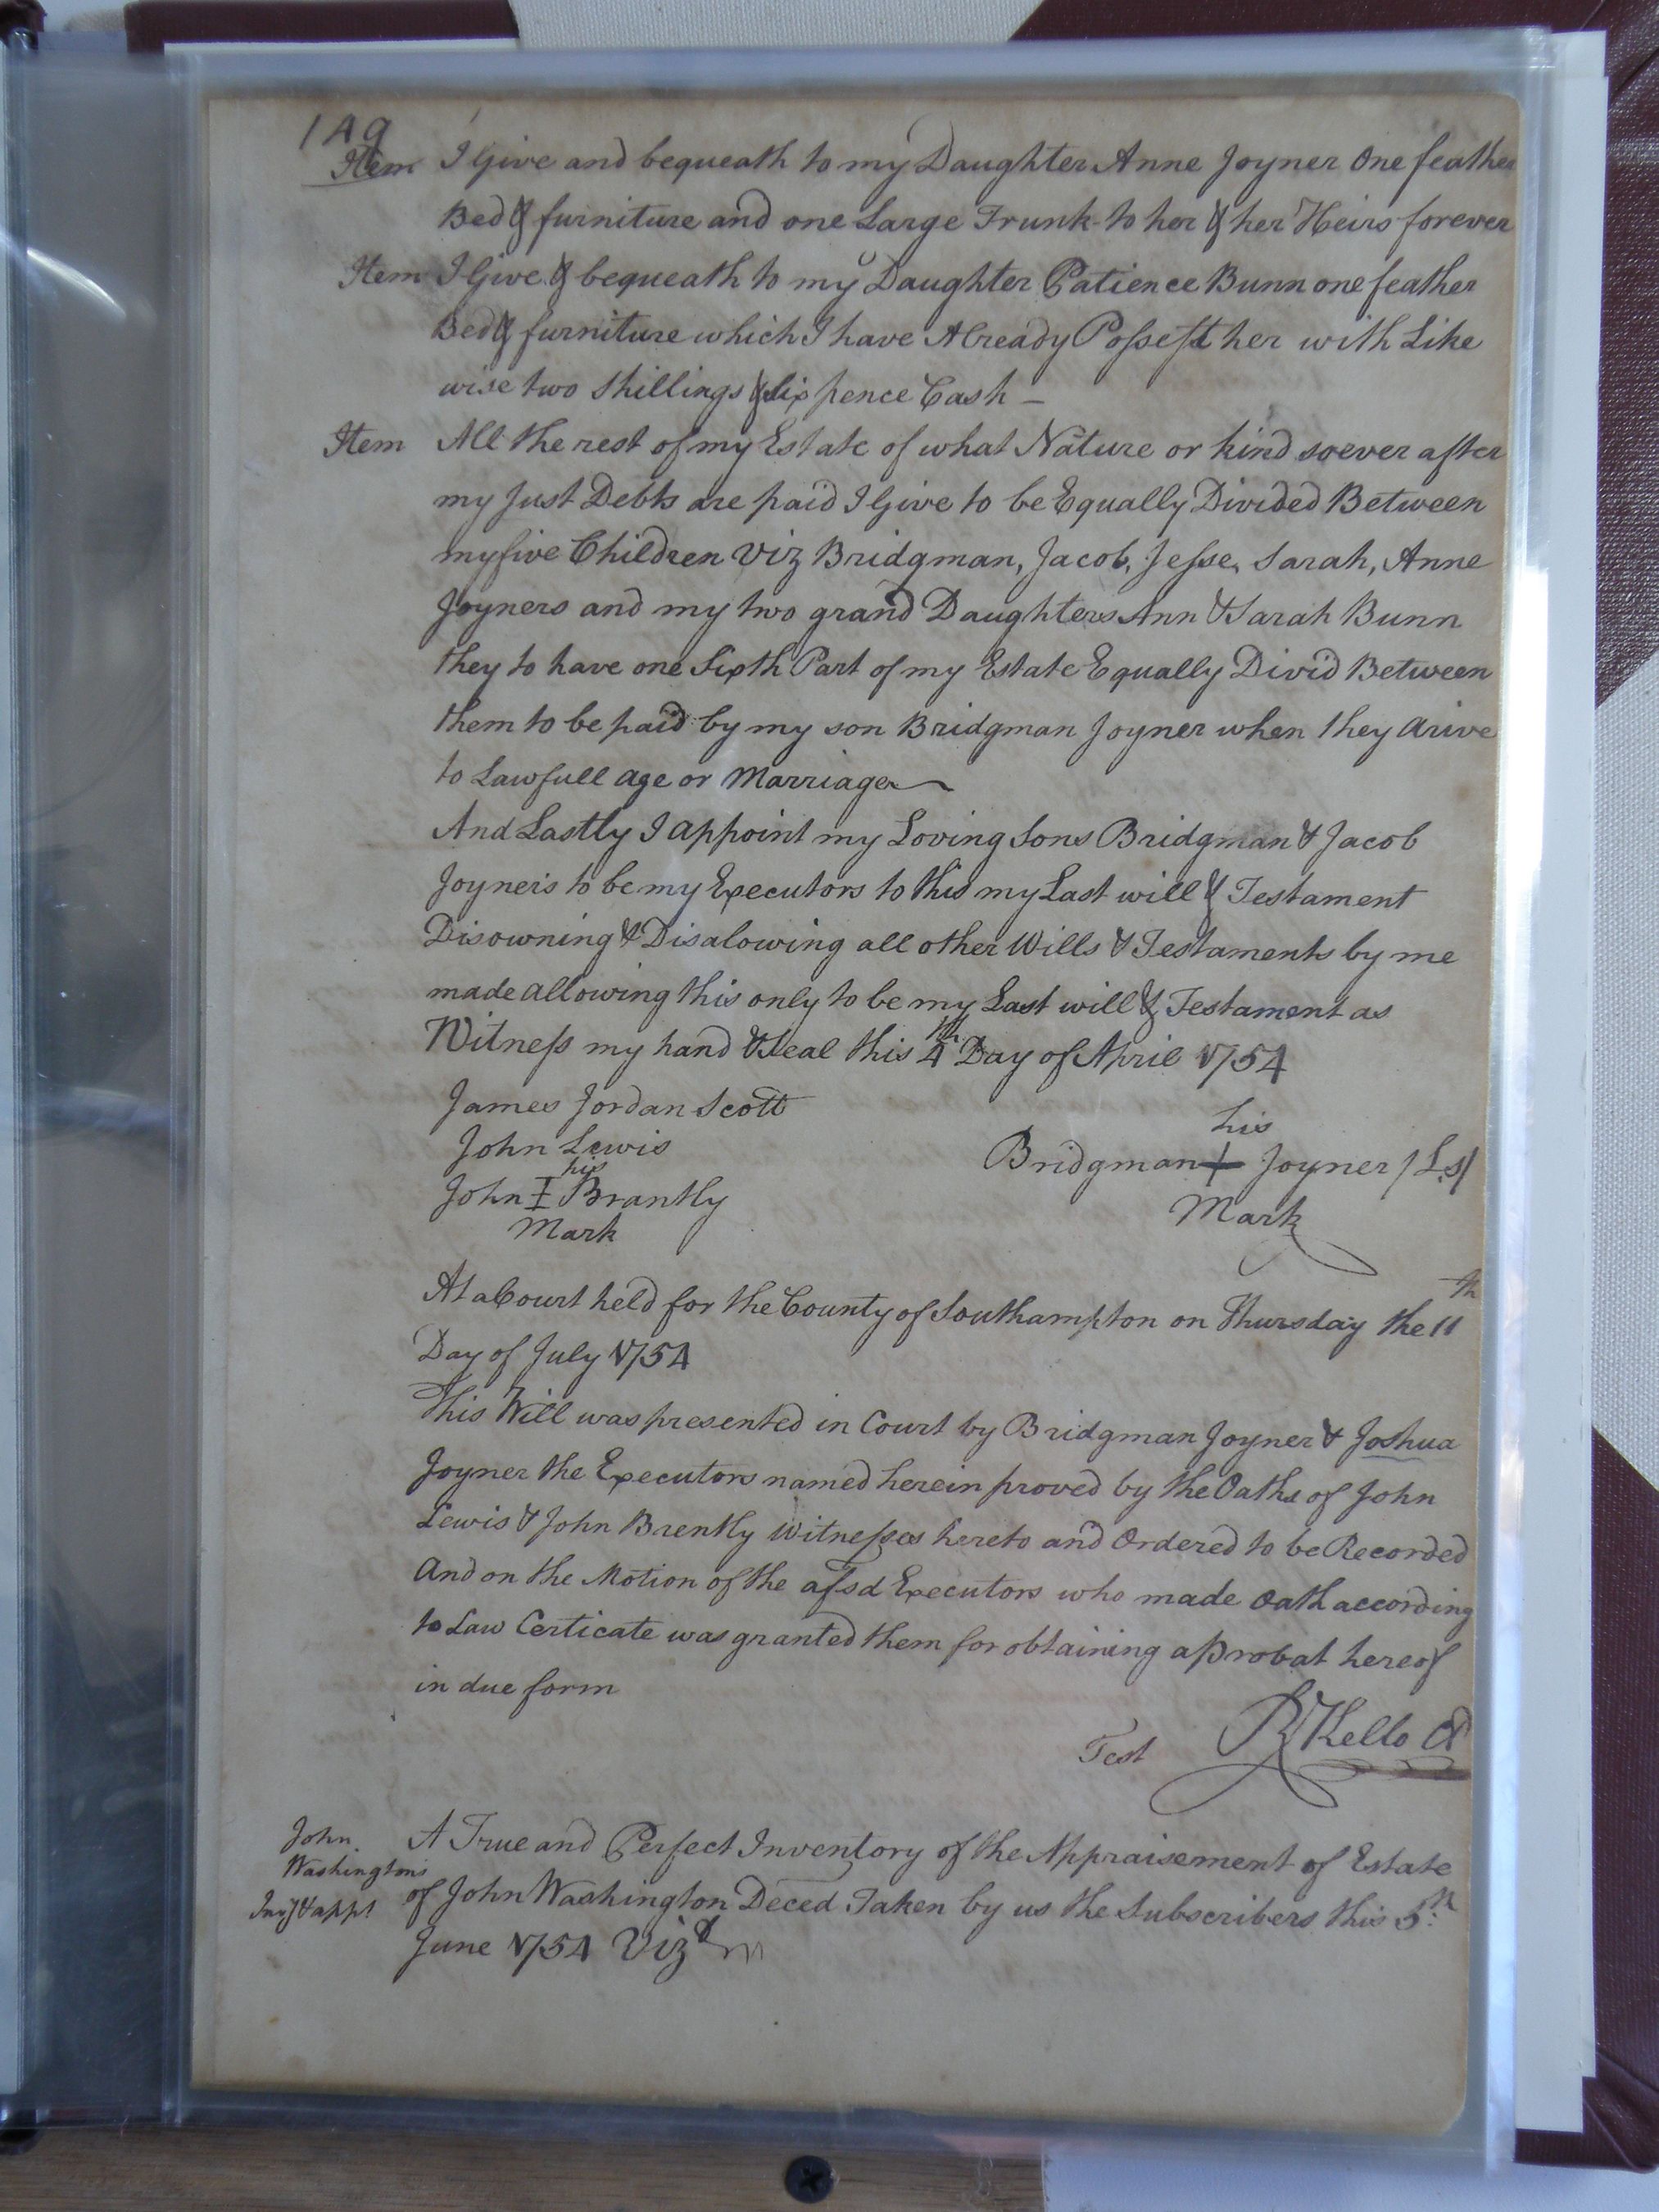 149
Item I Give and bequeath to my Daughter Anne Joyner One feather
Bed & furniture and one Large Trunk to her & her Heirs forever
Item I Give & bequeath to my Daughter Patience Bunn one feather
Bed & furniture which I have Already Possesst her with Like
wise two Shillings & Six pence Cash —
Item All the rest of my Estate of what Nature or kind soever after
my Just Debts are paid I Give to be Equally Divided Between
my five Children Viz Bridgman, Jacob, Jesse, Sarah, Anne
Joyners and my two grand Daughters Ann & Sarah Bunn
they to have one Sixth Part of my Estate Equally Divid Between
them to be paid by my son Bridgman Joyner when they Arive
to Lawfull age or Marriage
And Lastly I Appoint my Loving Sons Bridgman & Jacob
Joyners to be my Executors to this my Last will & Testament
Disowning & Disalowing all other Wills & Testaments by me
made allowing this only to be my Last will & Testament as
Witness my hand & Seal this 4th Day of April 1754
James Jordan Scott
his
John Lewis
Bridgman + Joyner /L.S/
his
John I Brantly
Mark
Mark
At a Court held for the County of Southampton on Thursday the 11th
Day of July 1754
This Will was presented in Court by Bridgman Joyner & Joshua
Joyner the Executors named herein proved by the Oaths of John
Lewis & John Brently Witnesses hereto and Ordered to be Recorded
And on the Motion of the afsd Executors who made Oath according
to Law Certicate was granted them for obtaining a Probat hereof
in due form
Test R Kello Cl
John
Washington's
Invy & appt
A True and Perfect Inventory of the Appraisement of Estate
of John Washington Deced Taken by us the Subscribers this 5th
June 1754 Vizt